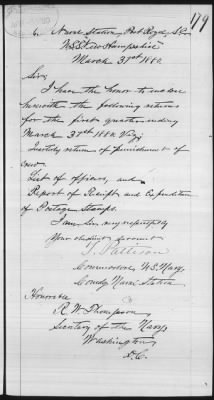 179
Naval Station, Port Royal, S.C.
U.S.S. New Hampshire
March 31st 1880.
Sir,
I have the honor to enclose
herewith the following returns
for the first quarter ending
March 31st 1880 Viz;
Quarterly return of punishments of
crew.
List of officers, and
Report of Receipts and Expenditure
of Postage Stamps.
I am Sir, very respectfully
Your obedient servant
T. Pattison
Commodore, U.S. Navy,
Comdg Naval Station
Honorable
R. W. Thompson,
Secretary of the Navy,
Washington
D.C.